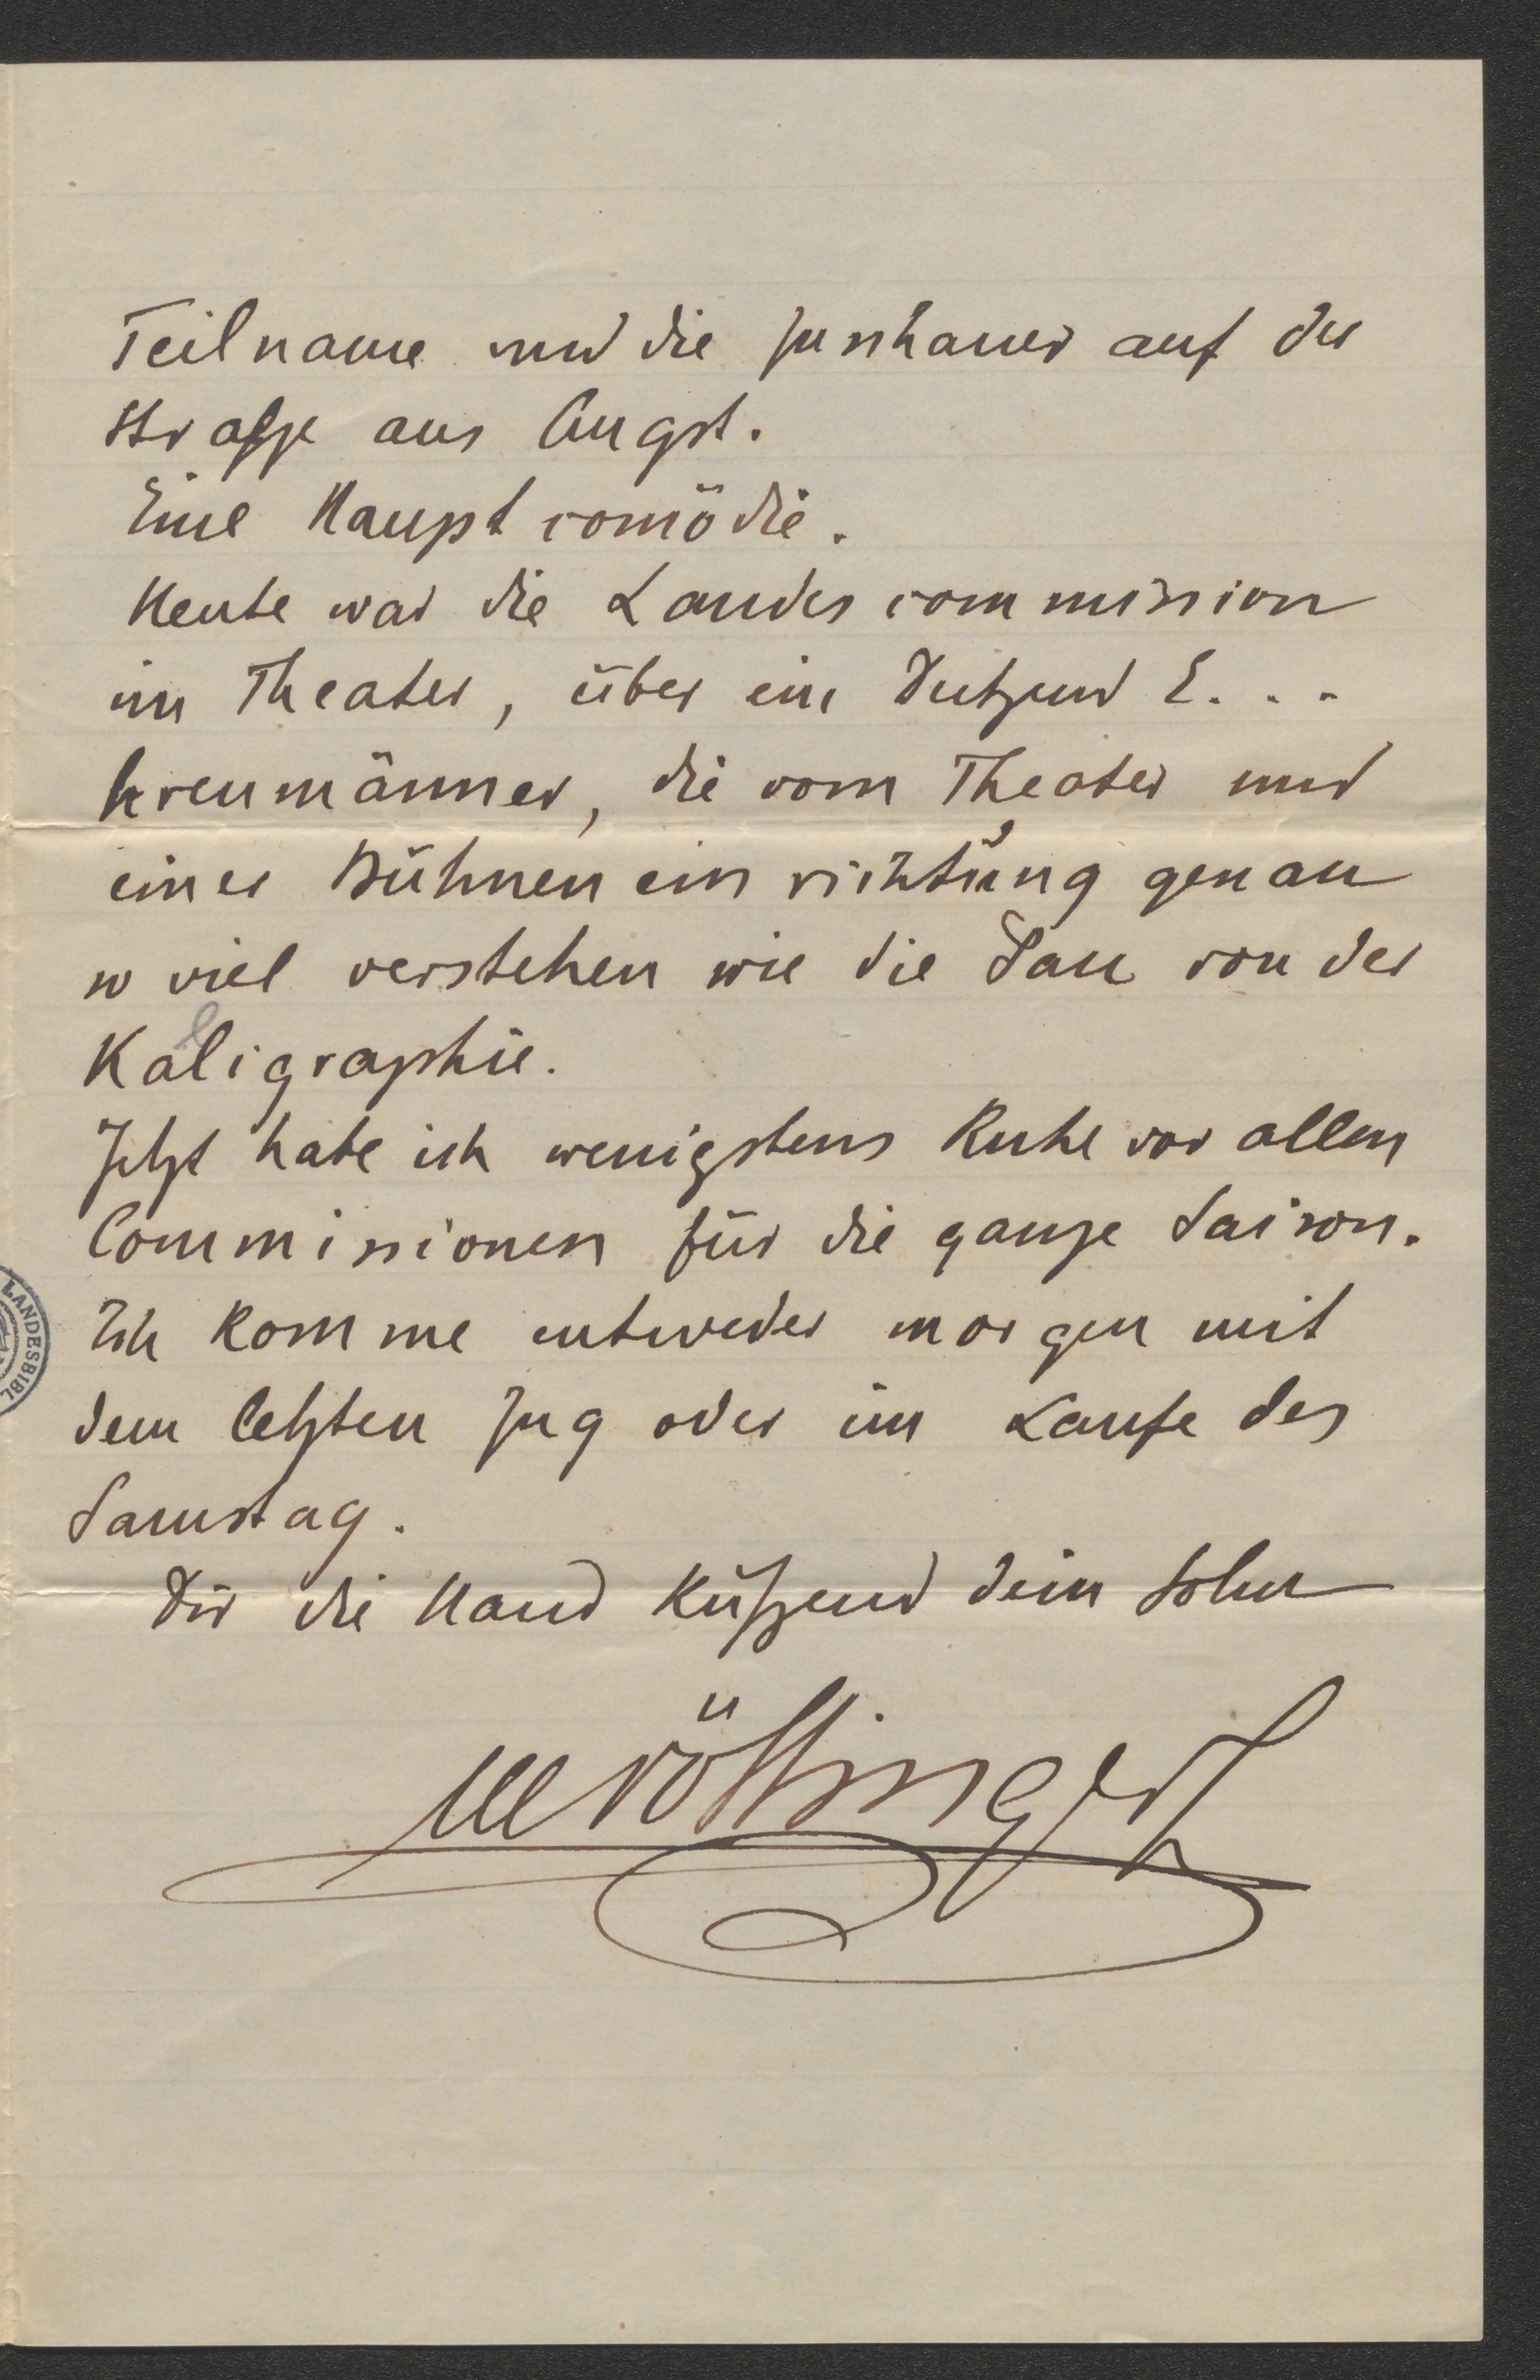 Teilname und die Zuschauer auf der
Straße aus Angst.
Eine Hauptcomödie.
Heute war die Landescommission
im Theater, über ein Dutzend E...
hrenmänner, die vom Theater und
einer Bühneneinrichtung genau
so viel verstehen wie die Sau von der
Kalligraphie.
Jetzt habe ich wenigstens Ruhe vor allen
Commissionen für die ganze Saison.
Ich komme entweder morgen mit
dem letzten Zug oder im Laufe des
Samstag.
Dir die Hand küßend dein Sohn
LANDESBIBL